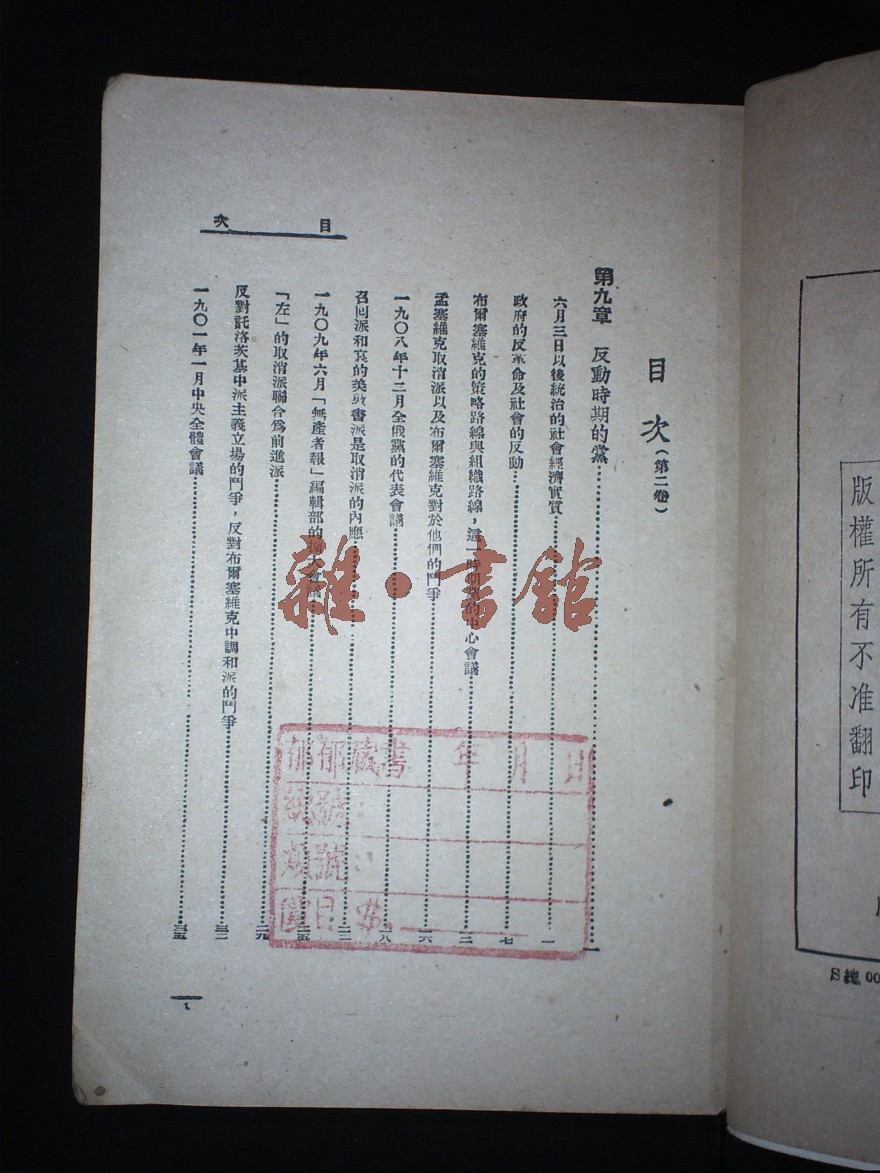 版權所有不准翻印
S總 00
目次
目次(第二卷)
第九章 反動時期的黨
六月三日以後統治的社會經濟實質 一
政府的反革命及社會的反動 七
布爾塞維克的策略路線與組織路線,這一時期黨的中心會議
孟塞維克取消派以及布爾塞維克對於他們的鬥爭
一九〇八年十二月全俄黨的代表會議
召回派和哀的美敦書派是取消派的內應
一九〇九年六月「無產者報」編輯部的擴大會議
「左」的取消派聯合爲前進派 二九
反對託洛茨基中派主義立場的鬥爭,反對布爾塞維克中調和派的鬥爭 三二
一九〇一年一月中央全體會議 三五
1
雜·書館
郁郁藏書 年 月 日
總號:
類號: